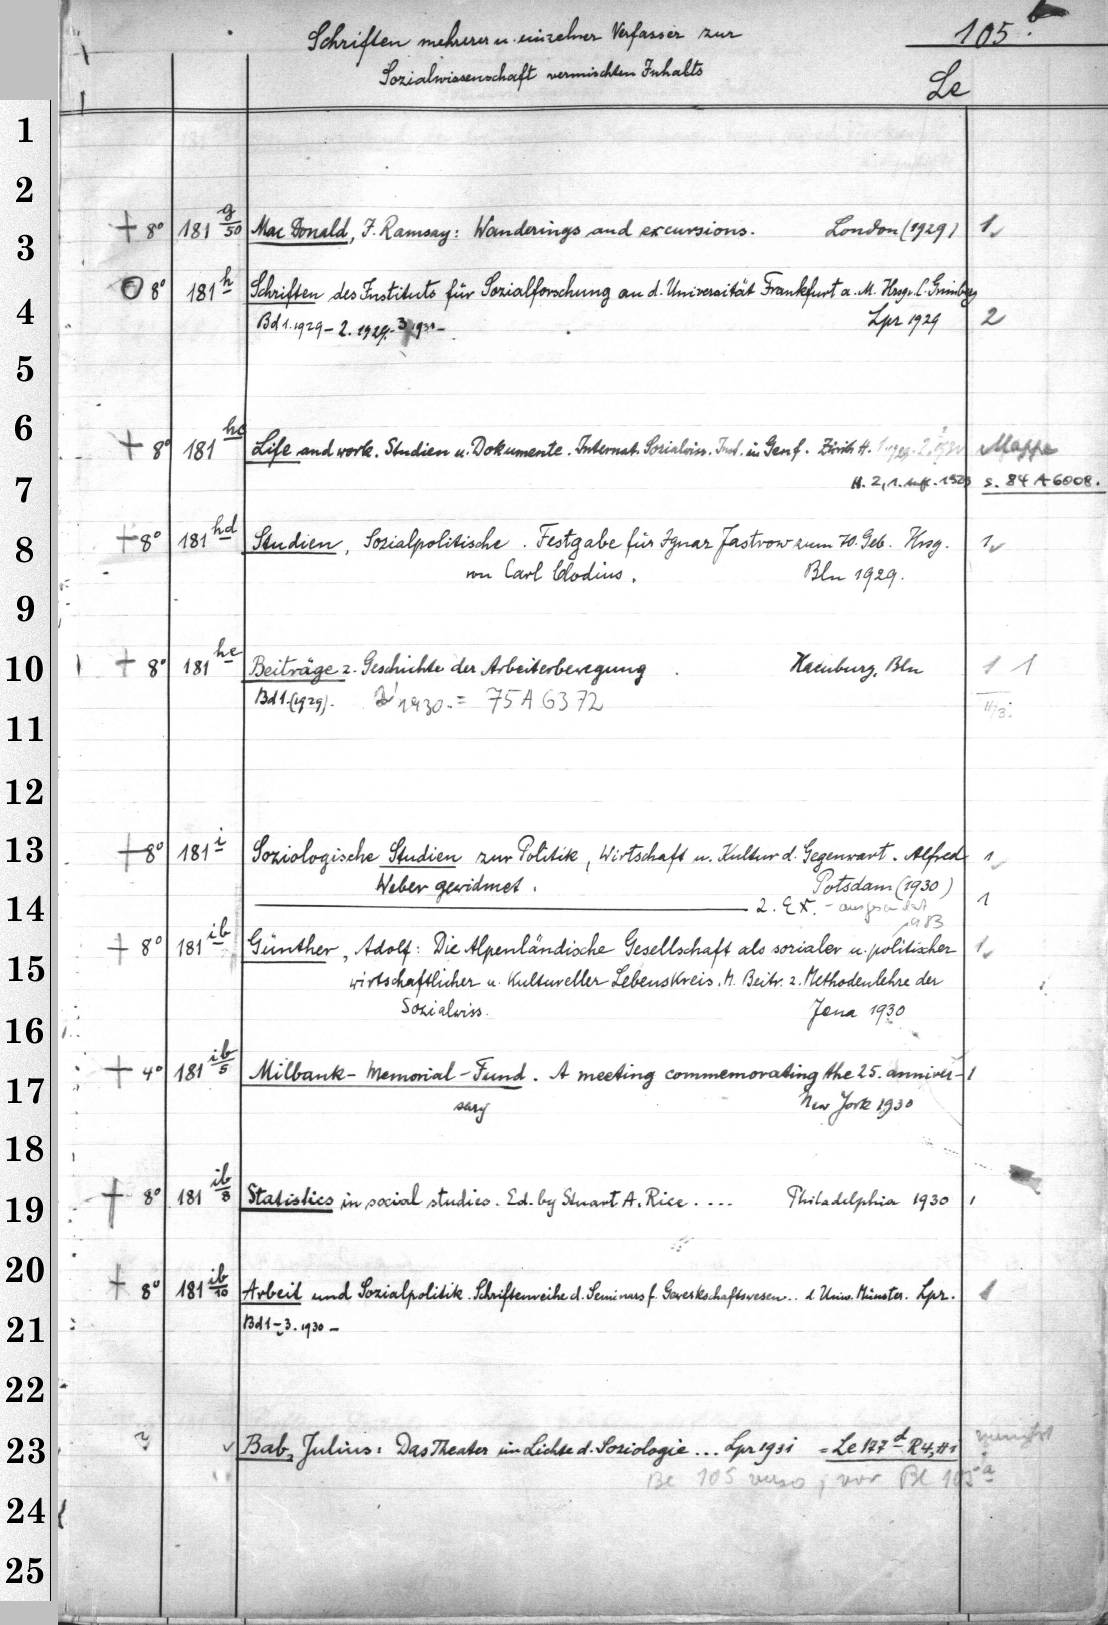 Schriften mehrerer u. einzelner Verfasser zur 105 b
Sozialwissenschaft vermischten Inhalts
Le
1
2
3 + 8° 181 g/50 Mac Donald, J. Ramsay: Wanderings and excursions. London (1929) 1
4 8° 181 h Schriften des Instituts für Sozialforschung an d. Universität Frankfurt a. M. Hrsg. C. Grünberg
Bd 1. 1929 – 2. 1929. 3 1931 – Lpz 1929 2
5
6 + 8° 181 hc Life and work. Studien u. Dokumente. Internat. Sozialwiss. Inst. in Genf. Zürich H. Mappe
7 H. 2, 1. Aufl. 1929 s. 84 A 6008.
8 + 8° 181 hd Studien, Sozialpolitische. Festgabe für Ignaz Jastrow zum 70. Geb. Hrsg. 1
von Carl Clodius. Bln 1929.
9
10 + 8° 181 he Beiträge z. Geschichte der Arbeiterbewegung. Hamburg, Bln 1 1
Bd 1. (1929). 2 1930. = 75 A 6372
11
12
13 + 8° 181 i Soziologische Studien zur Politik, Wirtschaft u. Kultur d. Gegenwart. Alfred 1
Weber gewidmet. Potsdam (1930)
14 2. Ex. – 1983 1
+ 8° 181 ib Günther, Adolf: Die Alpenländische Gesellschaft als sozialer u. politischer 1
15 wirtschaftlicher u. Kultureller Lebenskreis. M. Beitr. z. Methodenlehre der
Sozialwiss. Jena 1930
16
17 + 4° 181 ib/5 Milbank – Memorial – Fund. A meeting commemorating the 25. anniver– 1
sary New York 1930
18
19 + 8° 181 ib/8 Statistics in social studies. Ed. by Stuart A. Rice .... Philadelphia 1930 1
20 + 8° 181 ib/10 Arbeit und Sozialpolitik. Schriftenreihe d. Seminars f. Gewerkschaftswesen.. d Univ. Münster. Lpz. 1
21 Bd 1 – 3. 1930 –
22
23 Bab, Julius: Das Theater im Lichte d. Soziologie ... Lpz 1931 = Le 177 d R 4, H 1
Bl 105 verso, vor Bl 105 a
24
25